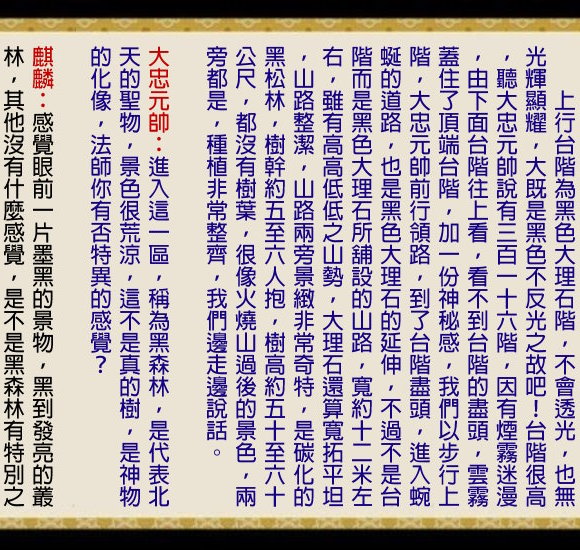 上行台階為黑色大理石階，不會透光，也無
光輝顯耀，大既是黑色不反光之故吧！台階很高
，聽大忠元帥說有三百一十六階，因有煙霧迷漫
，由下面台階往上看，看不到台階的盡頭，雲霧
蓋住了頂端台階，加一份神秘感，我們以步行上
階，大忠元帥前行領路，到了台階盡頭，進入蜿
蜒的道路，也是黑色大理石的延伸，不過不是台
階而是黑色大理石所舖設的山路，寬約十二米左
右，雖有高高低低之山勢，大理石還算寬拓平坦
，山路整潔，山路兩旁景緻非常奇特，是碳化的
黑松林，樹幹約五至六人抱，樹高約五十至六十
公尺，都沒有樹葉，很像火燒山過後的景色，兩
旁都是，種植非常整齊，我們邊走邊說話。
大忠元帥：進入這一區，稱為黑森林，是代表北
天的聖物，景色很荒涼，這不是真的樹，是神物
的化像，法師你有否特異的感覺？
麒麟：感覺眼前一片墨黑的景物，黑到發亮的叢
林，其他沒有什麼感覺，是不是黑森林有特別之